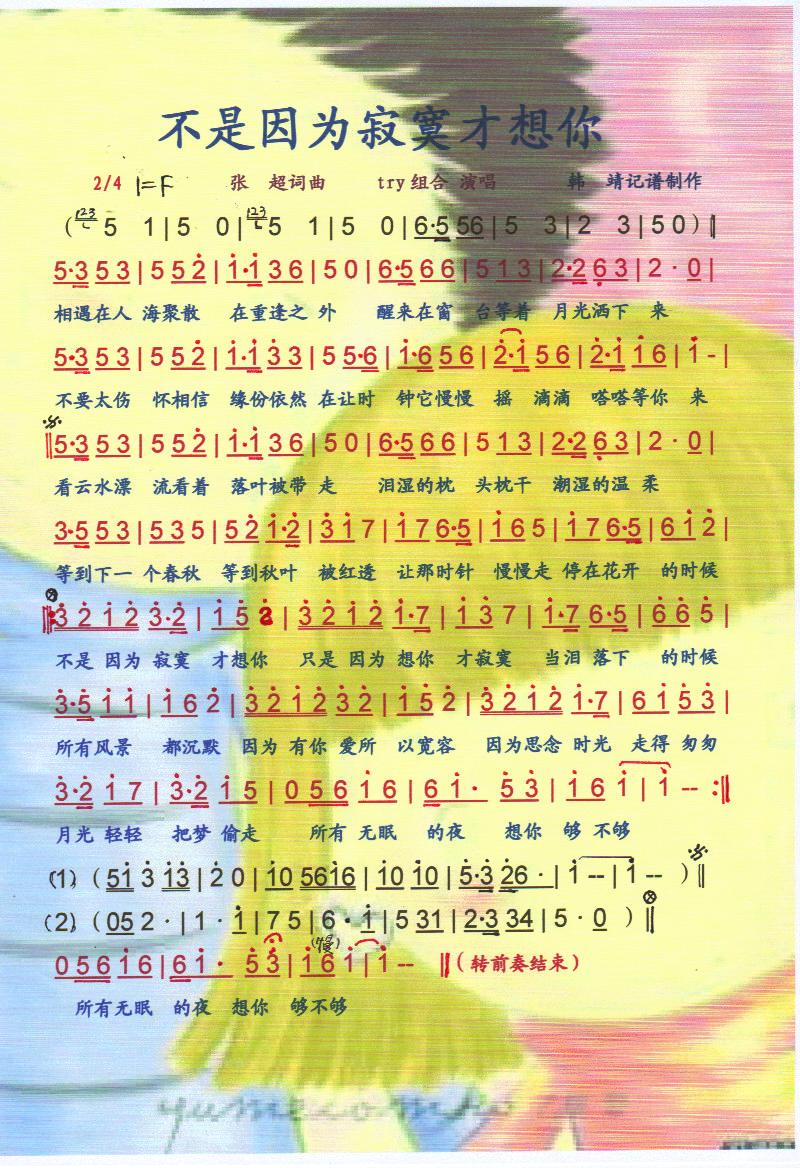 不是因为寂寞才想你
2/4 1=F 张 超词曲 try组合 演唱 韩 靖记谱制作
(123 5 1|5 0|123 5 1|5 0|6·5 56|5 3|2 3|5 0)‖
5·3 5 3|5 5 2̇|1̇·1̇ 3 6|5 0|6·5 6 6|5 1 3|2·2 6̣ 3|2 · 0|
相遇在人 海聚散 在重逢之 外 醒来在窗 台等着 月光洒下 来
5·3 5 3|5 5 2̇|1̇·1̇ 3̇ 3|5 5·6|1̇·6 5 6|2̇·1̇ 5 6|2̇·1̇ 1̇ 6|1̇ -|
不要太伤 怀相信 缘份依然 在让时 钟它慢慢 摇 滴滴 嗒嗒等你 来
‖5·3 5 3|5 5 2̇|1̇·1̇ 3 6|5 0|6·5 6 6|5 1 3|2·2 6̣ 3|2 · 0|
看云水漂 流看着 落叶被带 走 泪湿的枕 头枕干 潮湿的温 柔
3·5 5 3|5 3 5|5 2̇ 1̇·2̇|3̇ 1̇ 7|1̇ 7 6·5|1̇ 6 5|1̇ 7 6·5|6 1̇ 2̇|
等到下一 个春秋 等到秋叶 被红透 让那时针 慢慢走 停在花开 的时候
‖:3̇ 2̇ 1̇ 2̇ 3̇·2̇|1̇ 5 2̇|3̇ 2̇ 1̇ 2̇ 1̇·7|1̇ 3̇ 7|1̇·7 6·5|6̇ 6̇ 5̇|
不是 因为 寂寞 才想你 只是 因为 想你 才寂寞 当泪 落下 的时候
3̇·5̇ 1̇ 1̇|1̇ 6 2̇|3̇ 2̇ 1̇ 2̇ 3̇ 2̇|1̇ 5 2̇|3̇ 2̇ 1̇ 2̇ 1̇·7|6 1̇ 5̇ 3̇|
所有风景 都沉默 因为 有你 爱所 以宽容 因为思念 时光 走得 匆匆
3̇·2̇ 1̇ 7|3̇·2̇ 1̇ 5|0 5 6 1̇ 6|6 1̇ · 5̇ 3̇|1̇ 6 1̇|1̇ -- :‖
月光 轻轻 把梦 偷走 所有 无眠 的夜 想你 够 不够
(1)(51̇ 3̇ 1̇3̇|2̇ 0|1̇0 561̇6|1̇0 1̇0|5̇·3̇ 2̇6 ·|1̇ --|1̇ --)‖
(2)(05 2 ·|1 · 1̇|7 5|6 · 1̇|5 31|2·3 34|5 · 0 )‖
(慢)
0 5 6 1̇ 6|6 1̇ · 5̇ 3̇|1̇ 6 1̇|1̇ -- ‖(转前奏结束)
所有无眠 的夜 想你 够不够